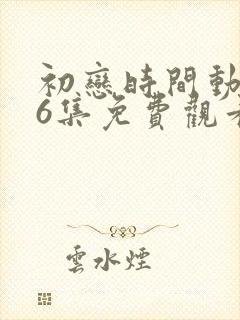 初戀時間動
6集免費觀看
雲水煙